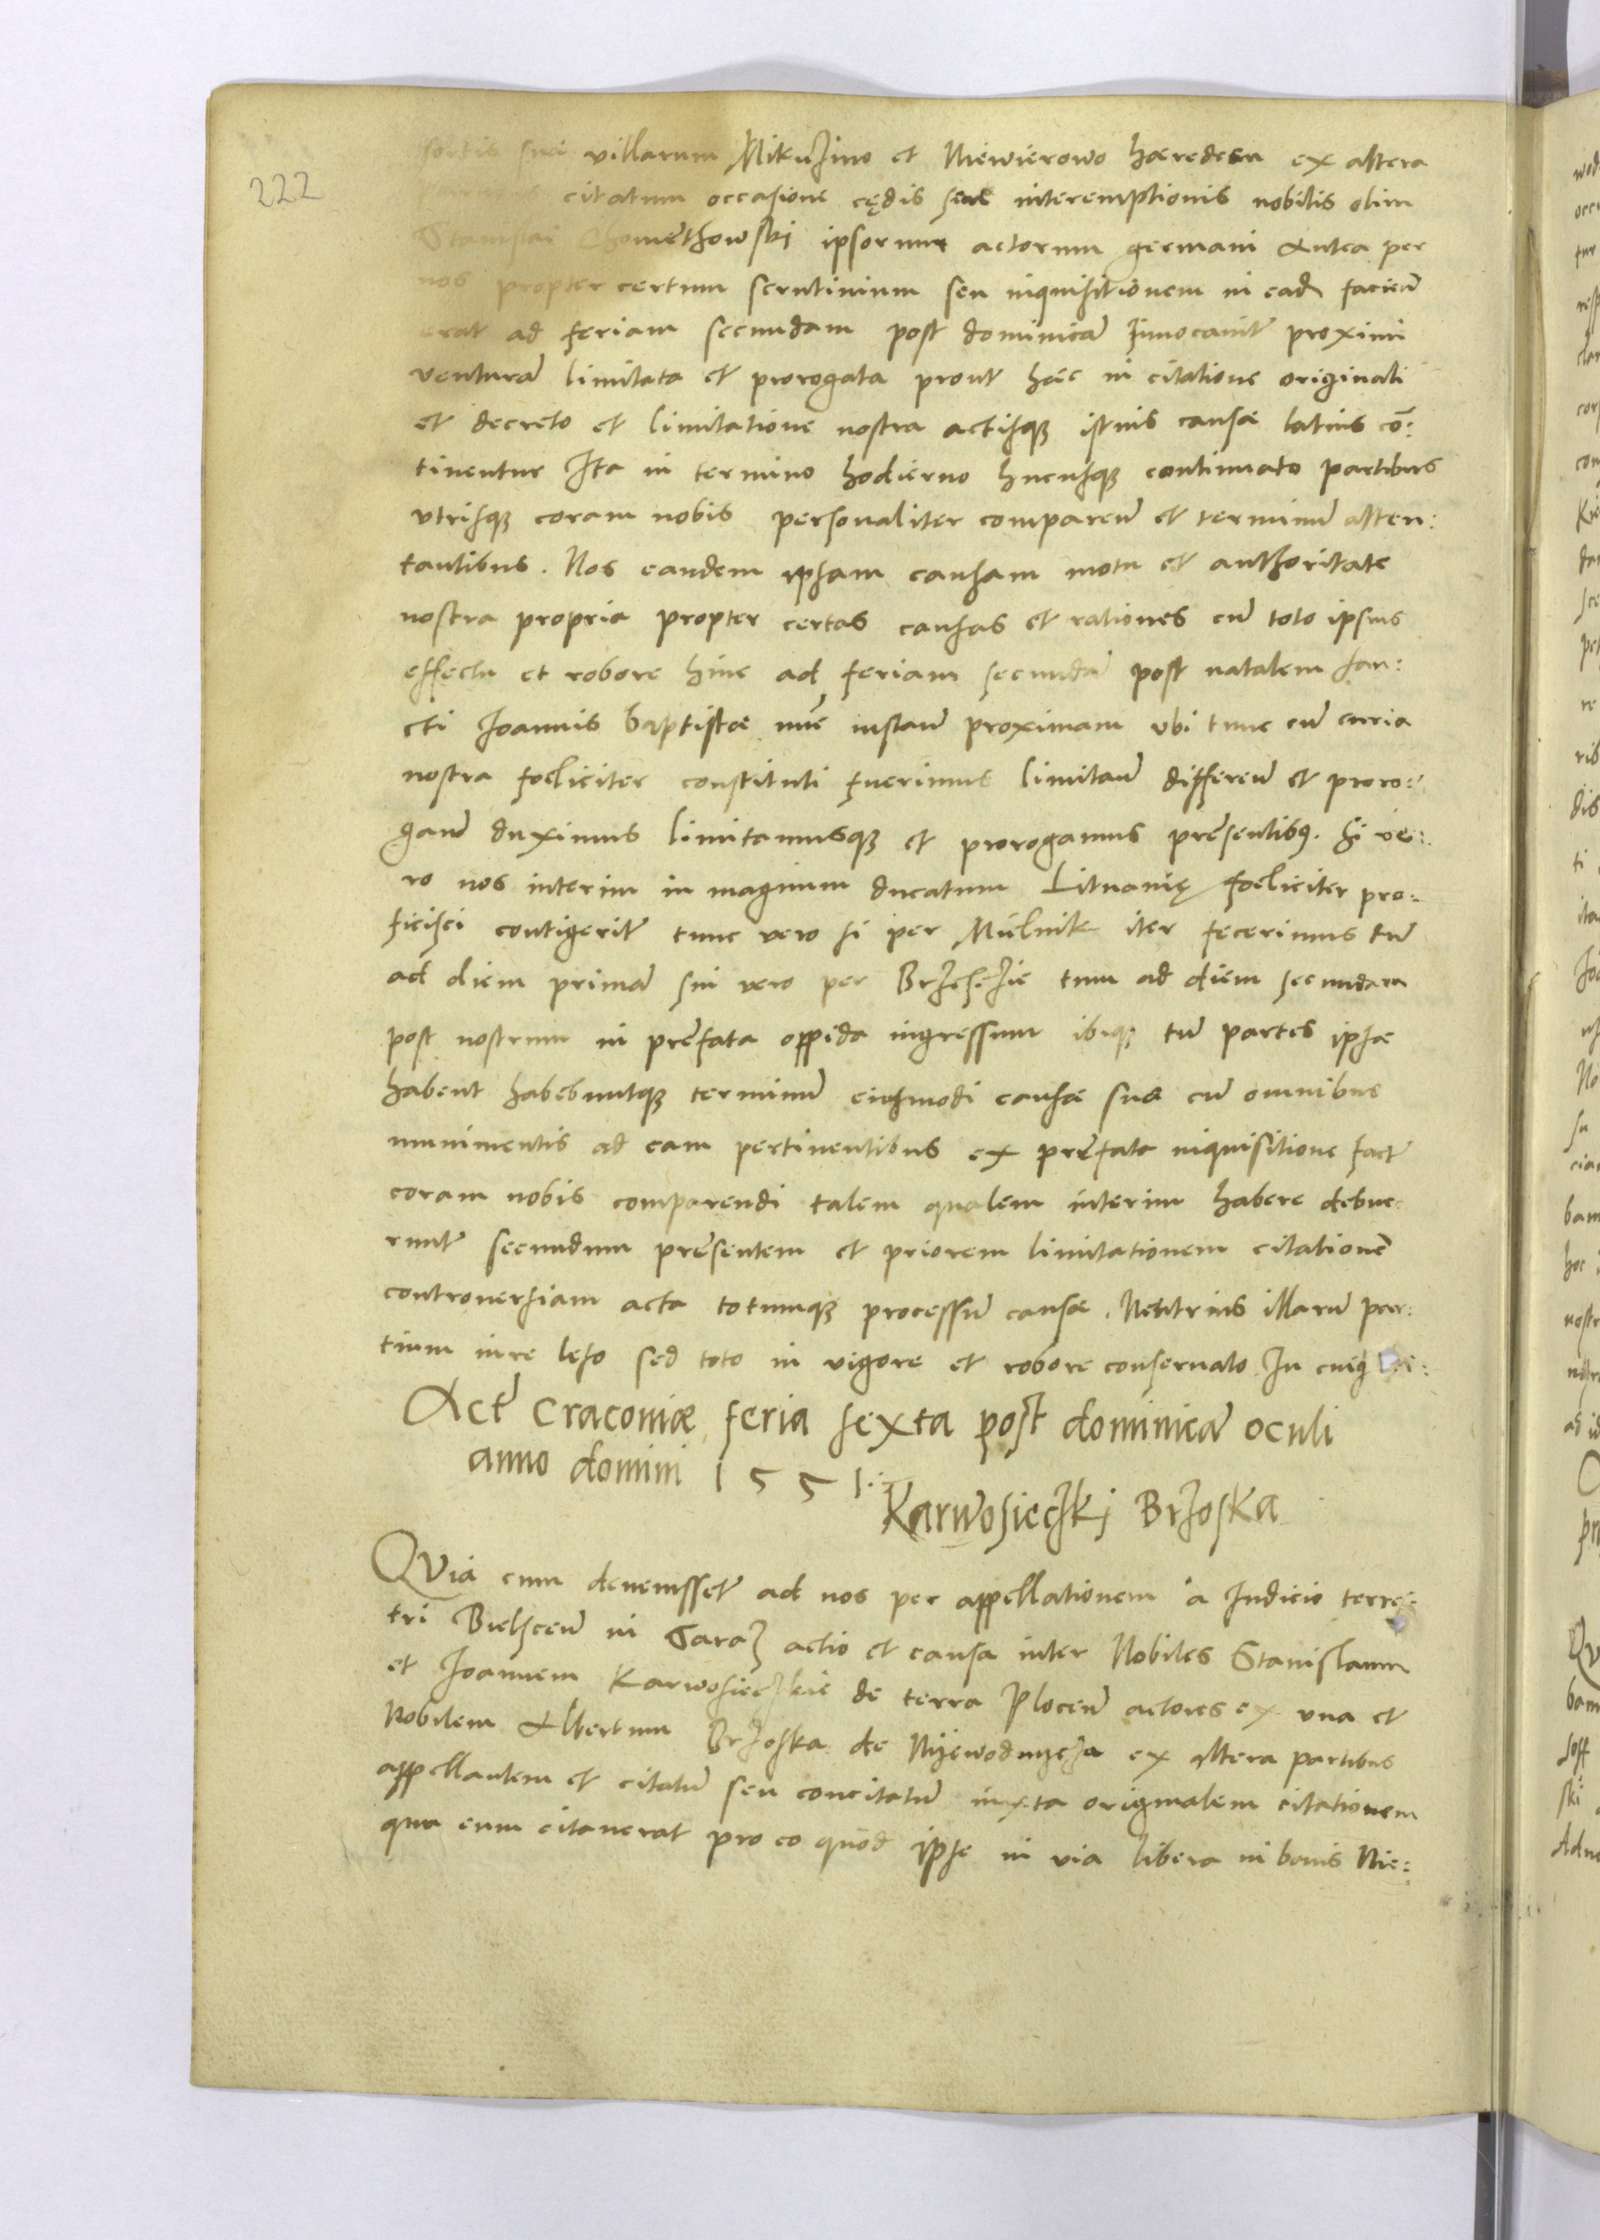 222
sortis suæ villarum Mikużino et Niewierowo hæredem ex altera
citatum occasione cędis seu interemptionis nobilis olim
Stanislai Chomethowski ipsorum actorum germani Antea per
nos propter certum scrutinium seu inquisitionem in eadē facieñ
erat ad feriam secundam post dominicā Invocavit proximi
venturā limitata et prorogata prout hæc in citatione originali
et decreto et limitatione nostra actisqꝫ istius causæ latius cō:
tinentur Ita in termino hodierno hucusqꝫ continuato partibus
vtrisqꝫ coram nobis personaliter compareñ et terminū atten:
tantibus. Nos eandem ipsam causam motu et authoritate
nostra propria propter certas causas et rationes cū toto ipsius
effectu et robore hinc ad feriam secundā post natalem san:
cti Joannis baptistæ nūc instañ proximam vbi tunc cū curia
nostra foeliciter constituti fuerimus limitañ differeñ et proro:
gañ duximus limitamusqꝫ et prorogamus præsentibꝫ. Si ve:
ro nos interim in magnum ducatum Lituanię foeliciter pro:
ficisci contigerit tunc vero si per Mielnik iter fecerimus tū
ad diem primā sin vero per Brżesczie tum ad diem secundam
post nostrum in præfata oppida ingressum ibiqꝫ tū partes ipsæ
habent habebuntqꝫ terminū eiusmodi causæ suæ cū omnibus
munimentis ad eam pertinentibus ex præfata inquisitione fact
coram nobis comparendi talem qualem interim habere debue
runt secundum præsentem et priorem limitationem citationē
controversiam acta totumqꝫ processū causæ. Neutrius illarū par:
tium iure leso sed toto in vigore et robore conservato. In cuiꝫ
Act Cracoviæ feria sexta post dominicā oculi
anno domini 1551.
Karwosieczki Brzoska
QVia cum devenisset ad nos per appellationem a Judicio terres:
tri Bielsceñ in Saraż actio et causa inter Nobiles Stanislaum
et Joannem Karwosieczkie de terra Ploceñ actores ex vna et
Nobilem Albertum Brzoska de ex altera partibus
appellantem et citatū seu concitatū iuxta originalem citationem
qua eum citaverat pro eo quod ipse in via libera in bonis Nie: